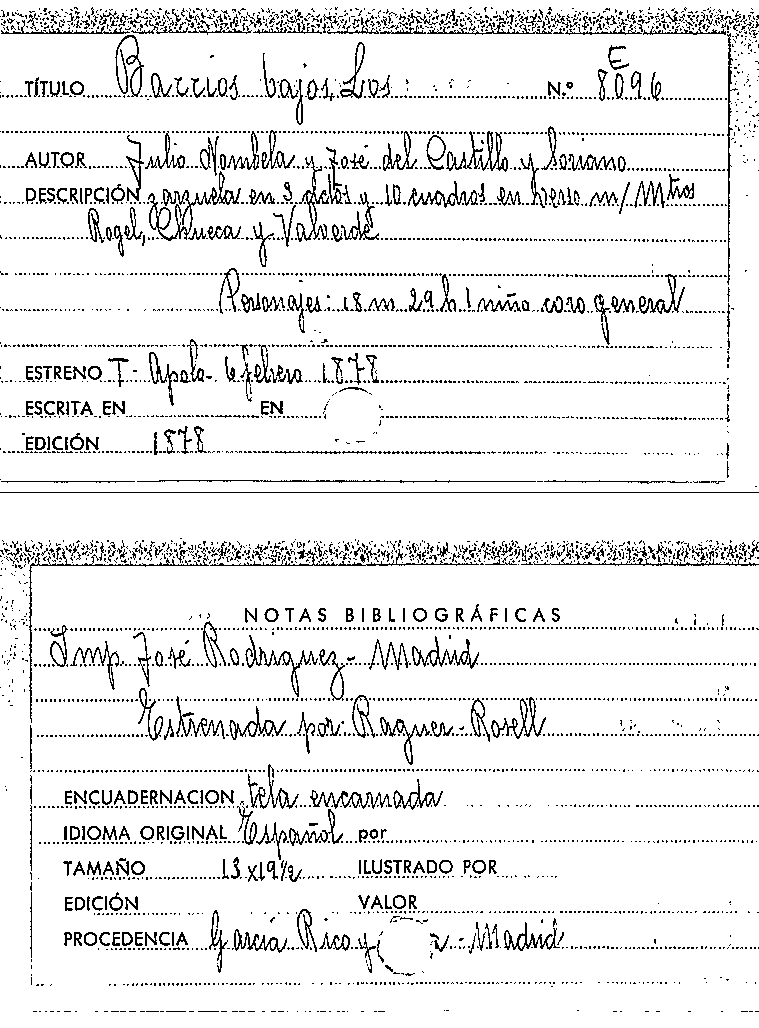 E
TÍTULO Barrios bajos, Los N.º 8096
AUTOR Julio Nombela y José del Castillo y Soriano
DESCRIPCIÓN zarzuela en 3 actos y 10 cuadros en verso m/ Mtros
Rogel, Chueca y Valverde
Personajes: 18 m 29 h 1 niño coro general
ESTRENO T- Apolo- 6 febrero 1878
ESCRITA EN EN
EDICIÓN 1878
NOTAS BIBLIOGRÁFICAS
Imp. José Rodriguez- Madrid
Estrenada por: Raguer- Rosell
ENCUADERNACION tela encarnada
IDIOMA ORIGINAL Español por
TAMAÑO 13 x 19 1/2 ILUSTRADO POR
EDICIÓN VALOR
PROCEDENCIA García Rico y - Madrid